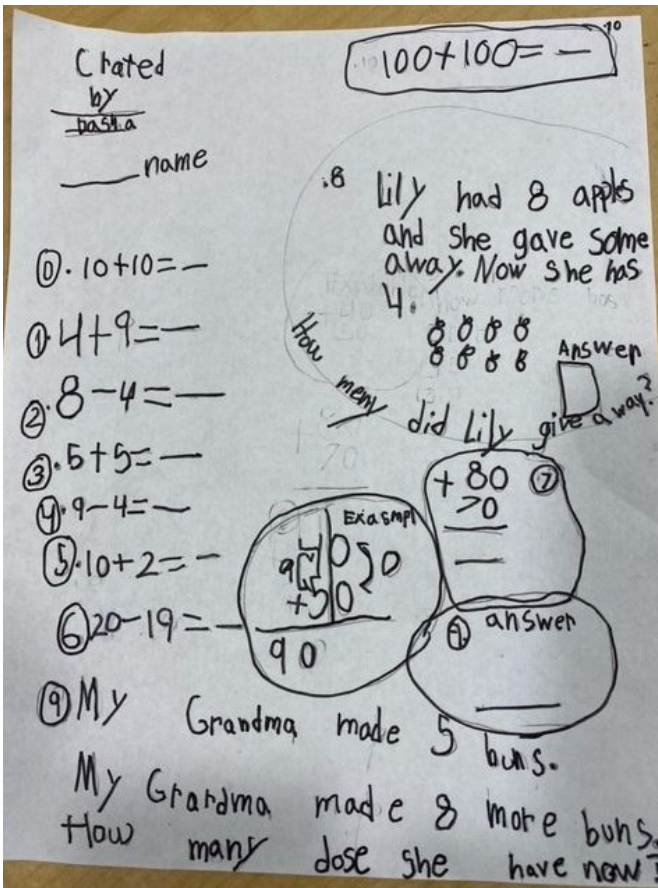 Crated
by
basha
___ name
10
100+100= —
⓪. 10+10= —
①. 4+9= —
②. 8-4= —
③. 5+5= —
④. 9-4= —
⑤. 10+2= —
⑥ 20-19= —
.8 Lily had 8 apples
and she gave some
away. Now she has
4.
How meny did Lily give away?
Answer
Exasmpl
9
40
+50
0
90
+ 80 ⑦
70
⑨. answer
⑨ My Grandma made 5 buns.
My Grandma made 8 more buns.
How many dose she have now?